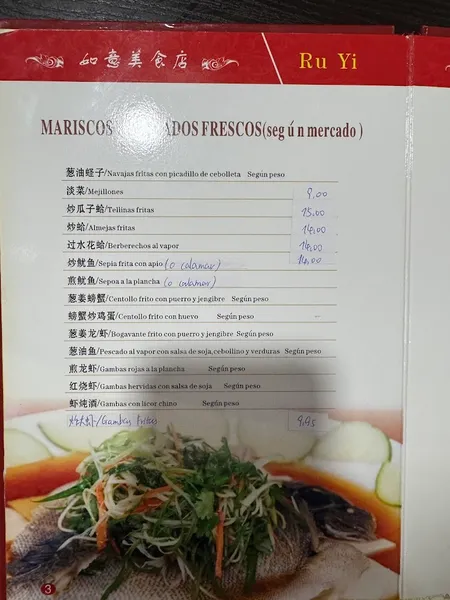 如意美食店
Ru Yi
MARISCOS ADOS FRESCOS(seg ú n mercado )
葱油蛏子/Navajas fritas con picadillo de cebolleta Según peso
淡菜/Mejillones 9,00
炒瓜子蛤/Tellinas fritas 15,00
炒蛤/Almejas fritas 14,00
过水花蛤/Berberechos al vapor 14,00
炒鱿鱼/Sepia frita con apio (o calamar) 14,00
煎鱿鱼/Sepoa a la plancha (o calamar)
葱姜螃蟹/Centollo frito con puerro y jengibre Según peso
螃蟹炒鸡蛋/Centollo frito con huevo Según peso
葱姜龙/虾/Bogavante frito con puerro y jengibre Según peso
葱油鱼/Pescado al vapor con salsa de soja,cebollino y verduras Según peso
煎龙虾/Gambas rojas a la plancha Según peso
红烧虾/Gambas hervidas con salsa de soja Según peso
虾炖酒/Gambas con licor chino Según peso
/Gambas Fritas 9,95
3